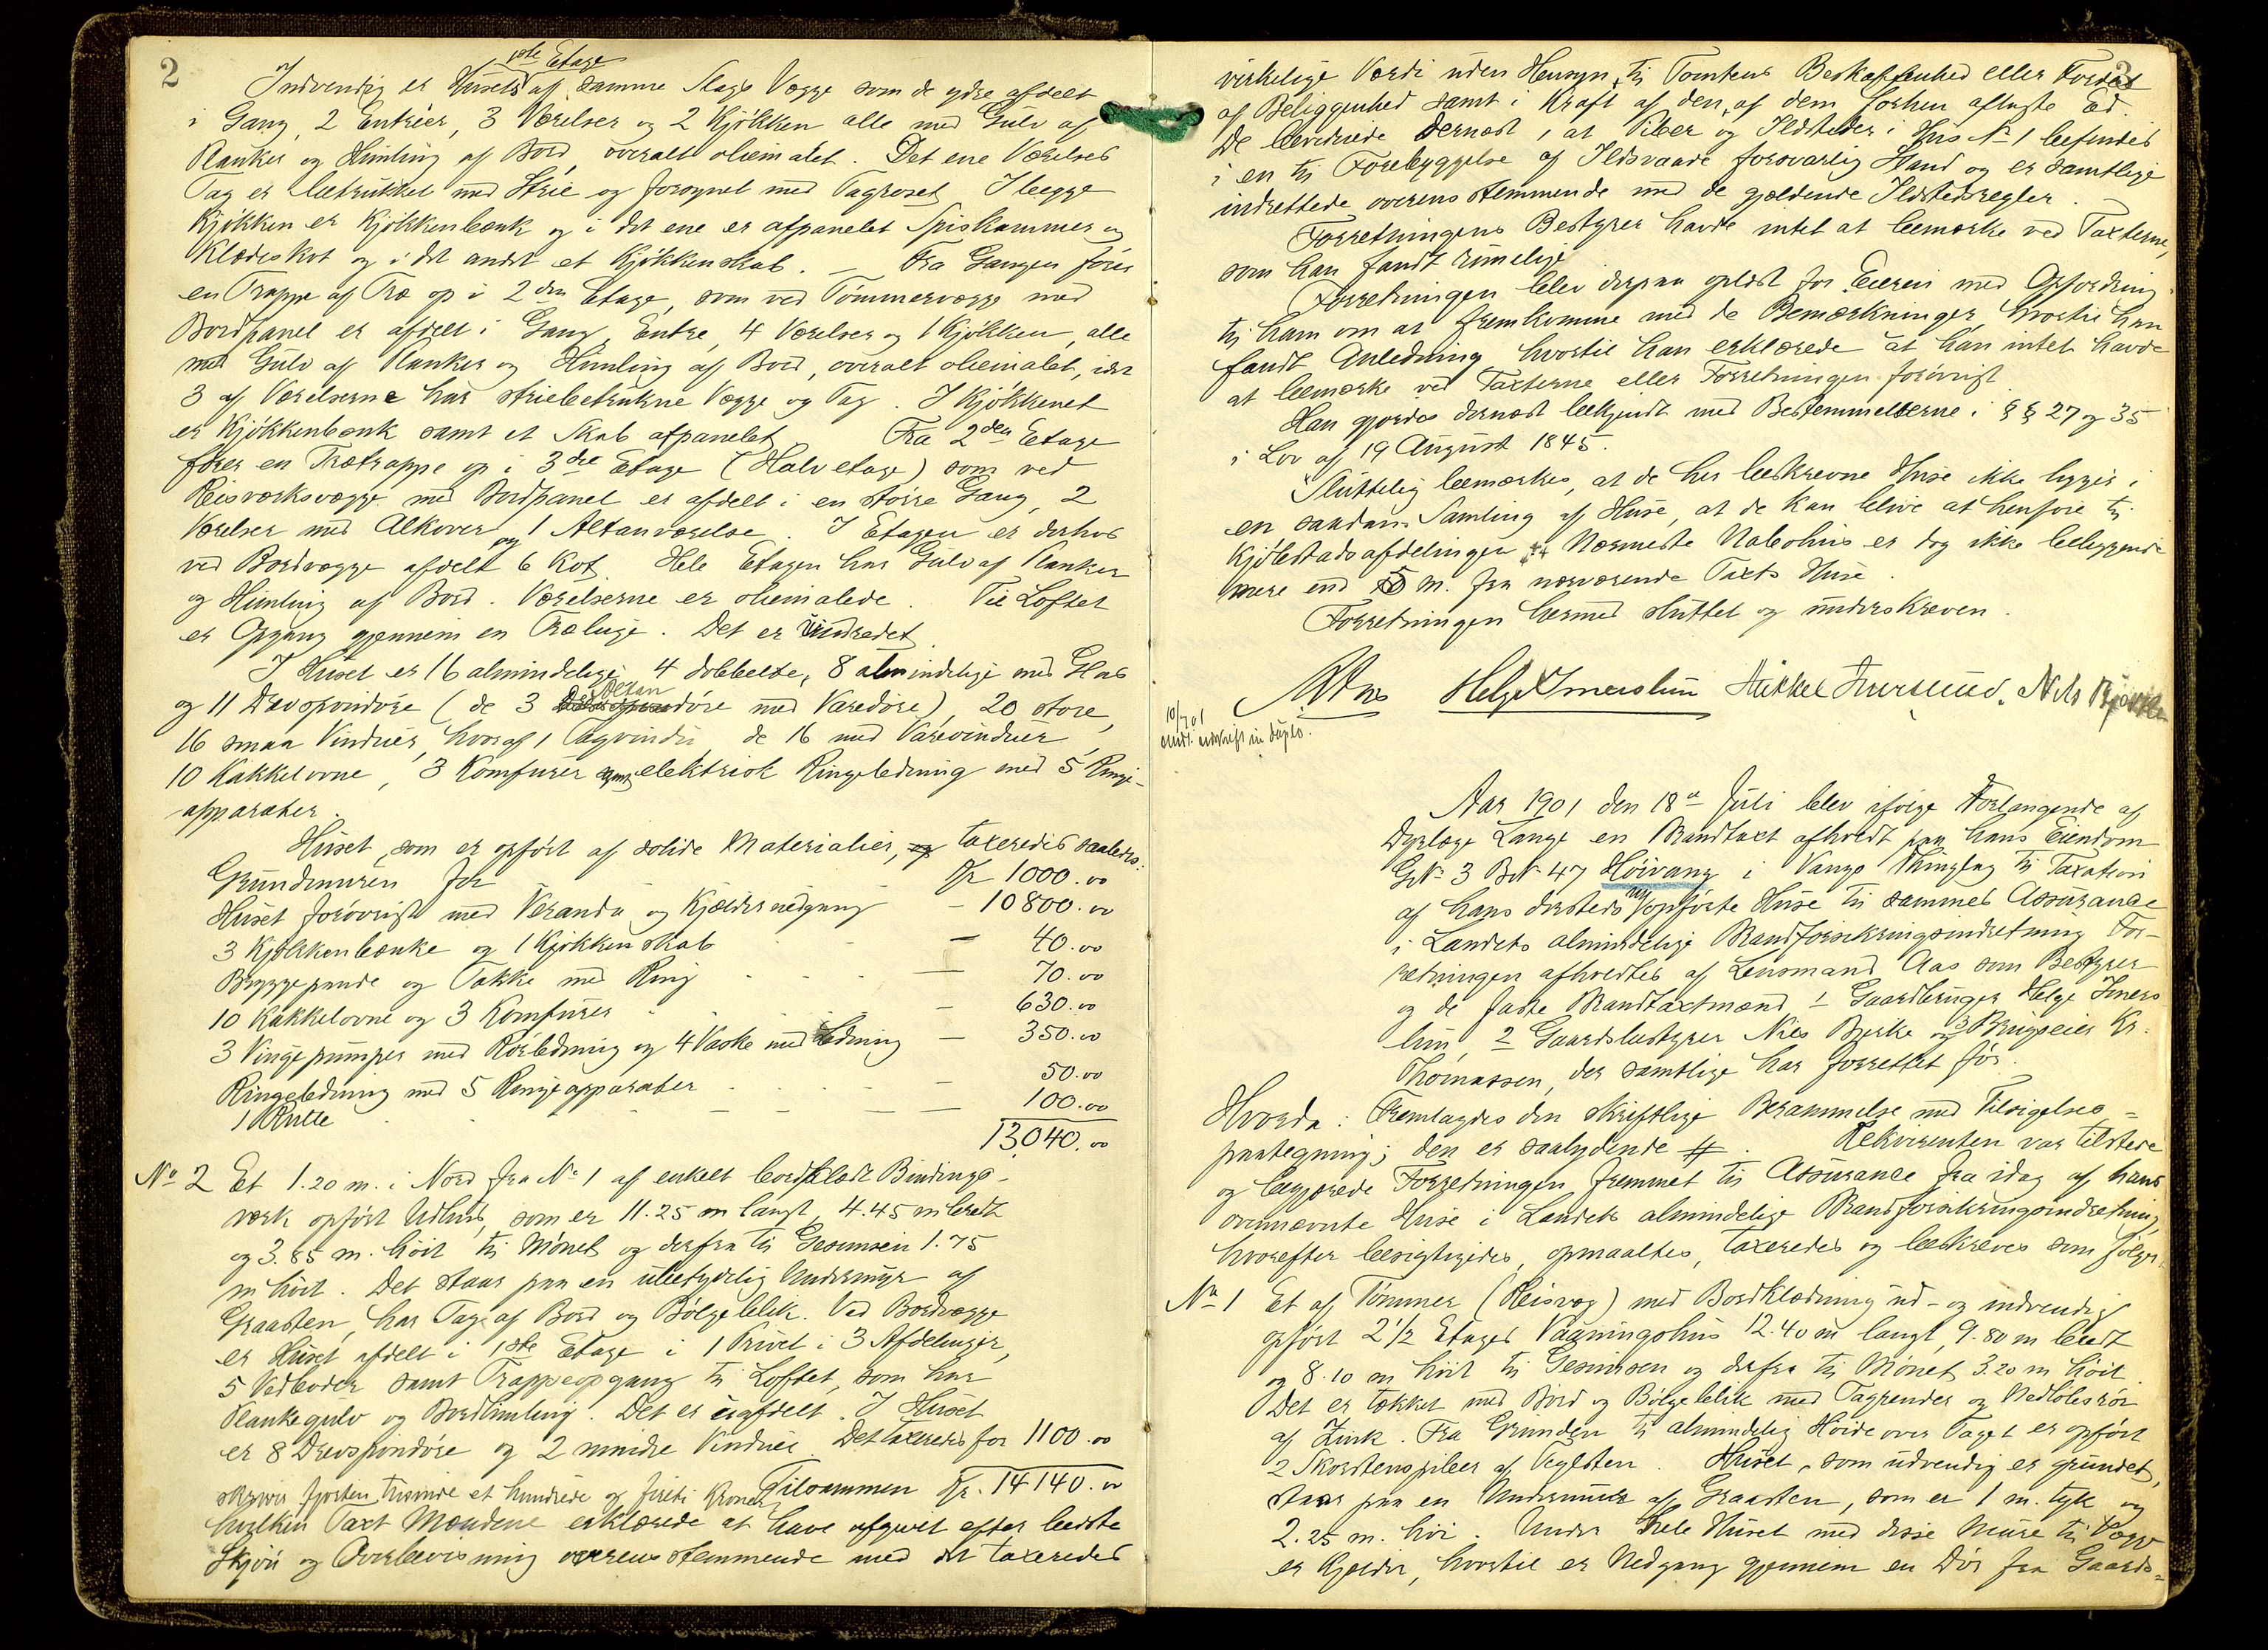 2
1ste Etage
Indvendig er Husets af samme Slags Vægge som de ydre afdelt
i Gang, 2 Entréer, 3 Værelser og 2 Kjøkken alle med Gulv af
Planker og Himling af Bord overalt oliemalet. Det ene Værelses
Tag er betrukket med Strie og forsynet med Tagroset. I begge
Kjøkken er Kjøkkenbænk og i det ene er afpanelet Spiskammer og
Klædeskot og i det andet et Kjøkkenskab. — Fra Gangen fører
en Trappe af Træ op i 2den Etage, som ved Tømmervægge med
Bordpanel er afdelt i Gang, Entre, 4 Værelser og 1 Kjøkken, alle
med Gulv af Planker og Himling af Bord, overalt oliemalet, idet
3 af Værelserne har striebetrukne Vægge og Tag. I Kjøkkenet
er Kjøkkenbænk samt et Skab afpanelet. Fra 2den Etage
fører en Trætrappe op i 3dre Etage (Halvetage) som ved
Reisværksvægge med Bordpanel er afdelt i en større Gang, 2
Værelser med Alkover og 1 Altanværelse. I Etagen er derhos
ved Bordvægge afdelt 6 Kot. Hele Etagen har Gulv af Planker
og Himling af Bord. Værelserne er oliemalede. Til Loftet
er Opgang gjennem en Træluge. Det er uindredet.
I Huset er 16 almindelige, 4 dobbelte, 8 almindelige med Glas
og 11 Drevspindøre (de 3 Altandøre med Varedøre), 20 store,
16 smaa Vinduer, hvoraf 1 Tagvindu, de 16 med Varevinduer,
10 Kakkelovne, 3 Komfurer samt elektrisk Ringeledning med 5 Ringe-
apparater.
Huset, som er opført af solide Materialier, og taxeredes saaledes:
Grundmuren for - - Kr 1000.00
Huset forøvrigt med Veranda og Kjældernedgang - 10800.00
3 Kjøkkenbænke og 1 Kjøkkenskab - - — 40.00
Bryggepande og Takke med Ring - - - — 70.00
10 Kakkelovne og 3 Komfurer - - — 630.00
3 Vingepumper med Rørledning og 4 Vaske med Ledning — 350.00
Ringeledning med 5 Ringeapparater - - - — 50.00
1 Rulle - - - — 100.00
13,040.00
No 2 Et 1.20 m. i Nord fra No 1 af enkelt bordklædt Bindings-
værk opført Udhus, som er 11.25 m langt, 4.45 m bredt
og 3.85 m. høit til Mønet og derfra til Gesimsen 1.75
m høit. Det staar paa en ubetydelig Undermur af
Graasten, har Tag af Bord og Bølgeblik. Ved Bordvægge
er Huset afdelt i 1ste Etage i 1 Privet i 3 Afdelinger,
5 Vedboder samt Trappeopgang til Loftet, som har
Plankegulv og Bordhimling. Det er uafdelt. I Huset
er 8 Drevspindøre og 2 mindre Vinduer. Det taxeredes for 1100.00
Tilsammen Kr. 14140.00
skriver fjorten tusinde et hundrede og firti Kroner,
hvilken Taxt Mændene erklærede at have afgivet efter bedste
Skjøn og Overbevisning overensstemmende med det taxeredes
3
virkelige Værdi uden Hensyn til Tomtens Beskaffenhed eller Fordel
af Beliggenhed samt i Kraft af den af dem forhen aflagte Ed.
De bevidnede dernæst, at Piber og Ildsteder i Hus No 1 befindes
i en til Forebyggelse af Ildsvaade forsvarlig Stand og er samtlige
indrettede overensstemmende med de gjældende Ildstedsregler.
Forretningens Bestyrer havde intet at bemærke ved Taxterne,
som han fandt rimelige
Forretningen blev derpaa oplæst for Eieren med Opfordring
til ham om at fremkomme med de Bemærkninger, hvortil han
fandt Anledning, hvortil han erklærede at han intet havde
at bemærke ved Taxterne eller Forretningen forøvrigt.
Han gjordes dernæst bekjendt med Bestemmelserne i §§ 27 og 35
i Lov af 19 August 1845.
Sluttelig bemærkes, at de her beskrevne Huse ikke ligger i
en saadan Samling af Huse, at de kan blive at henføre til
Kjøbstadsafdelingen. Nærmeste Nabohus er dog ikke beliggende
mere end 5 m. fra nærværende Taxts Huse.
Forretningen hermed sluttet og underskreven.
Aas Helge Imerslun Mikkel Nils
10/7 01
udskrift in duplo.
Aar 1901 den 18de Juli blev ifølge Forlangende af
Dyrlæge Lange en Brandtaxt afholdt paa hans Eiendom
GNo 3 BNo 47 Høivang i Vangs Thinglag til Taxation
af hans dersteds nyopførte Huse til sammes Assurance
i Landets almindelige Brandforsikringsindretning. For-
retningen afholdtes af Lensmand Aas som Bestyrer
og de faste Brandtaxtmænd 1 Gaardbruger Helge Imers
lun, 2 Gaardsbestyrer Nils Bjerke og 3 Brugseier Kr.
Thomassen, der samtlige har forrettet før.
Hvorda: Fremlagdes den skriftlige Berammelse med Tilsigelses-
paategning; den er saalydende #. Rekvirenten var tilstede
og begjærede Forretningen fremmet til Assurance fra idag af hans
ovennævnte Huse i Landets almindelige Brandforsikringsindretning,
hvorefter besigtigedes, opmaaltes, taxeredes og beskreves som følger:
No 1 Et af Tømmer (Reisvæg) med Bordklædning ud- og indvendig
opført 2½ Etages Vaaningshus 12.40 m langt, 9.80 m bredt
og 8.10 m høit til Gesimsen og derfra til Mønet 3.20 m høit.
Det er tækket med Bord og Bølgeblik med Tagrender og Nedløbsrør
af Zink. Fra Grunden til almindelig Høide over Taget er opført
2 Skorstenspiber af Teglsten. Huset, som udvendig er grundet,
staar paa en Undermur af Graasten, som er 1 m. tyk og
2.25 m. høi. Under hele Huset med disse Mure til Vægge
er Kjælder, hvortil er Nedgang gjennem en Dør fra Gaards-